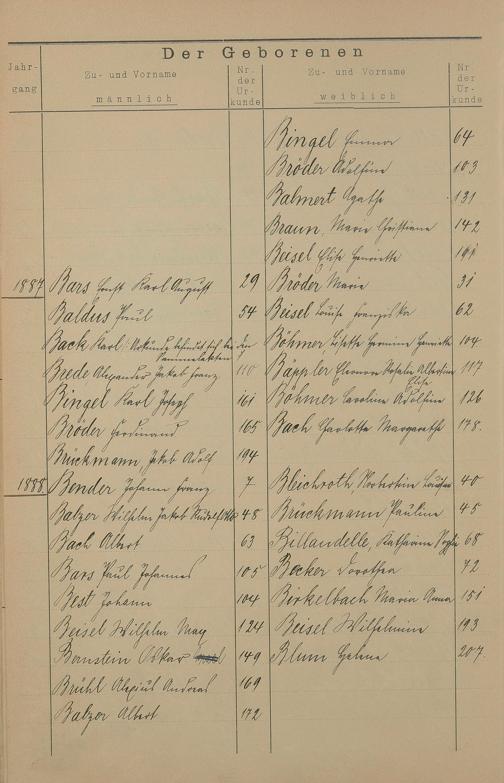 Der Geborenen
Jahr-
gang
Zu- und Vorname
männlich
Nr.
der
Ur-
kunde
Zu- und Vorname
weiblich
Nr.
der
Ur-
kunde
Bingel Emma 64
Bröder Adolfine 103
Balmert Agathe 131
Braun, Marie Christiane 142
Beisel Elise Henriette 161
1887 Bars Ernst Karl August 29 Bröder Marie 31
Baldus Paul 54 Beisel Louise Franziska 62
Back Karl: Urkunde befindet sich bei den Böhmer, Lisette Hermine Henriette 104
Sammelakten
Brede Alexander Jakob Franz 110 Bäppler Eleonore Rosalie Albertine 117
Elise
Bingel Karl Joseph 161 Böhmer Caroline Adolfine 126
Bröder Ferdinand 165 Bach Charlotte Margarethe 178.
Brückmann, Jakob Adolf 194
1888. Bender Johann Franz 7 Bleichroth, 40
Balzer Wilhelm Jakob 48 Brückmann Pauline 45
Bach Albert 63 Billaudelle, Katharina Sophie 68
Bars Paul Johannes 105 Becker Dorothea 72
Best Johann 104 Birkelbach Maria Anna 151
Beisel Wilhelm Max 124 Beisel Wilhelmine 193
Bernstein Oskar 149 Blum Helene 207.
Brühl Alexius Andreas 169
Balzer Albert 172